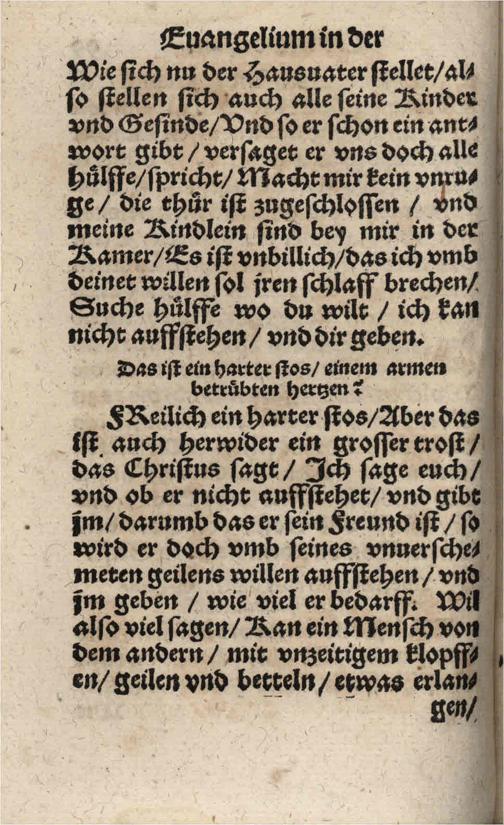 Euangelium in der
Wie sich nu der Hausuater stellet/al⸗
so stellen sich auch alle seine Kinder
vnd Gesinde/Vnd so er schon ein ant⸗
wort gibt / versaget er vns doch alle
hülffe/spricht/Macht mir kein vnru⸗
ge/ die thür ist zugeschlossen / vnd
meine Kindlein sind bey mir in der
Kamer/Es ist vnbillich/das ich vmb
deinet willen sol jren schlaff brechen/
Suche hülffe wo du wilt / ich kan
nicht auffstehen / vnd dir geben.
Das ist ein harter stos/ einem armen
betrübten hertzen?
FReilich ein harter stos/Aber das
ist auch herwider ein grosser trost/
das Christus sagt / Ich sage euch/
vnd ob er nicht auffstehet/ vnd gibt
jm/ darumb das er sein Freund ist / so
wird er doch vmb seines vnuersche⸗
meten geilens willen auffstehen / vnd
jm geben / wie viel er bedarff. Wil
also viel sagen/ Kan ein Mensch von
dem andern / mit vnzeitigem klopff⸗
en/ geilen vnd betteln / etwas erlan⸗
gen/